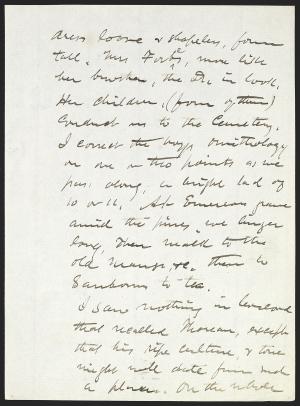 dress loose & shapeless, form
tall. Mrs Forbes, more like
her brother, the Dr. in look.
Her children, (four of them)
conduct us to the Cemetery.
I correct the boys ornithology
on one or two points as we
pass along, a bright lad of
10 or 11. At Emersons grave
amid the pines we linger
long, then walk to the
old Manse &c. then to
Sanborns to tea.
I saw nothing in Concord
that recalled Thoreau, except
that his ripe culture, & tone
might well date from such
a place. On the whole